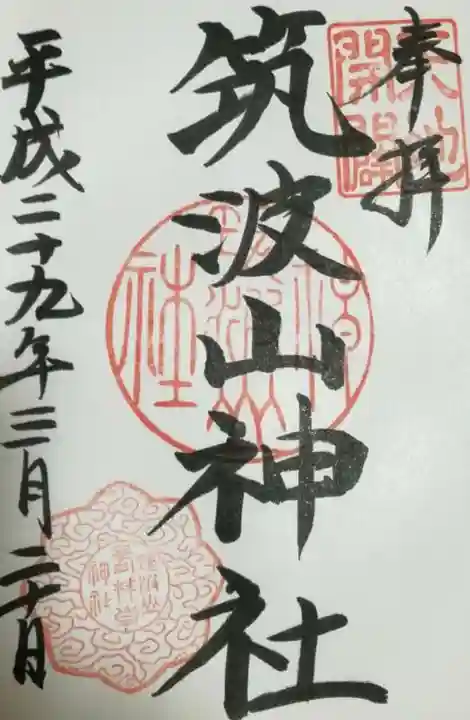 奉拝
天地
開闢
筑波山神社
平成二十九年三月二十日